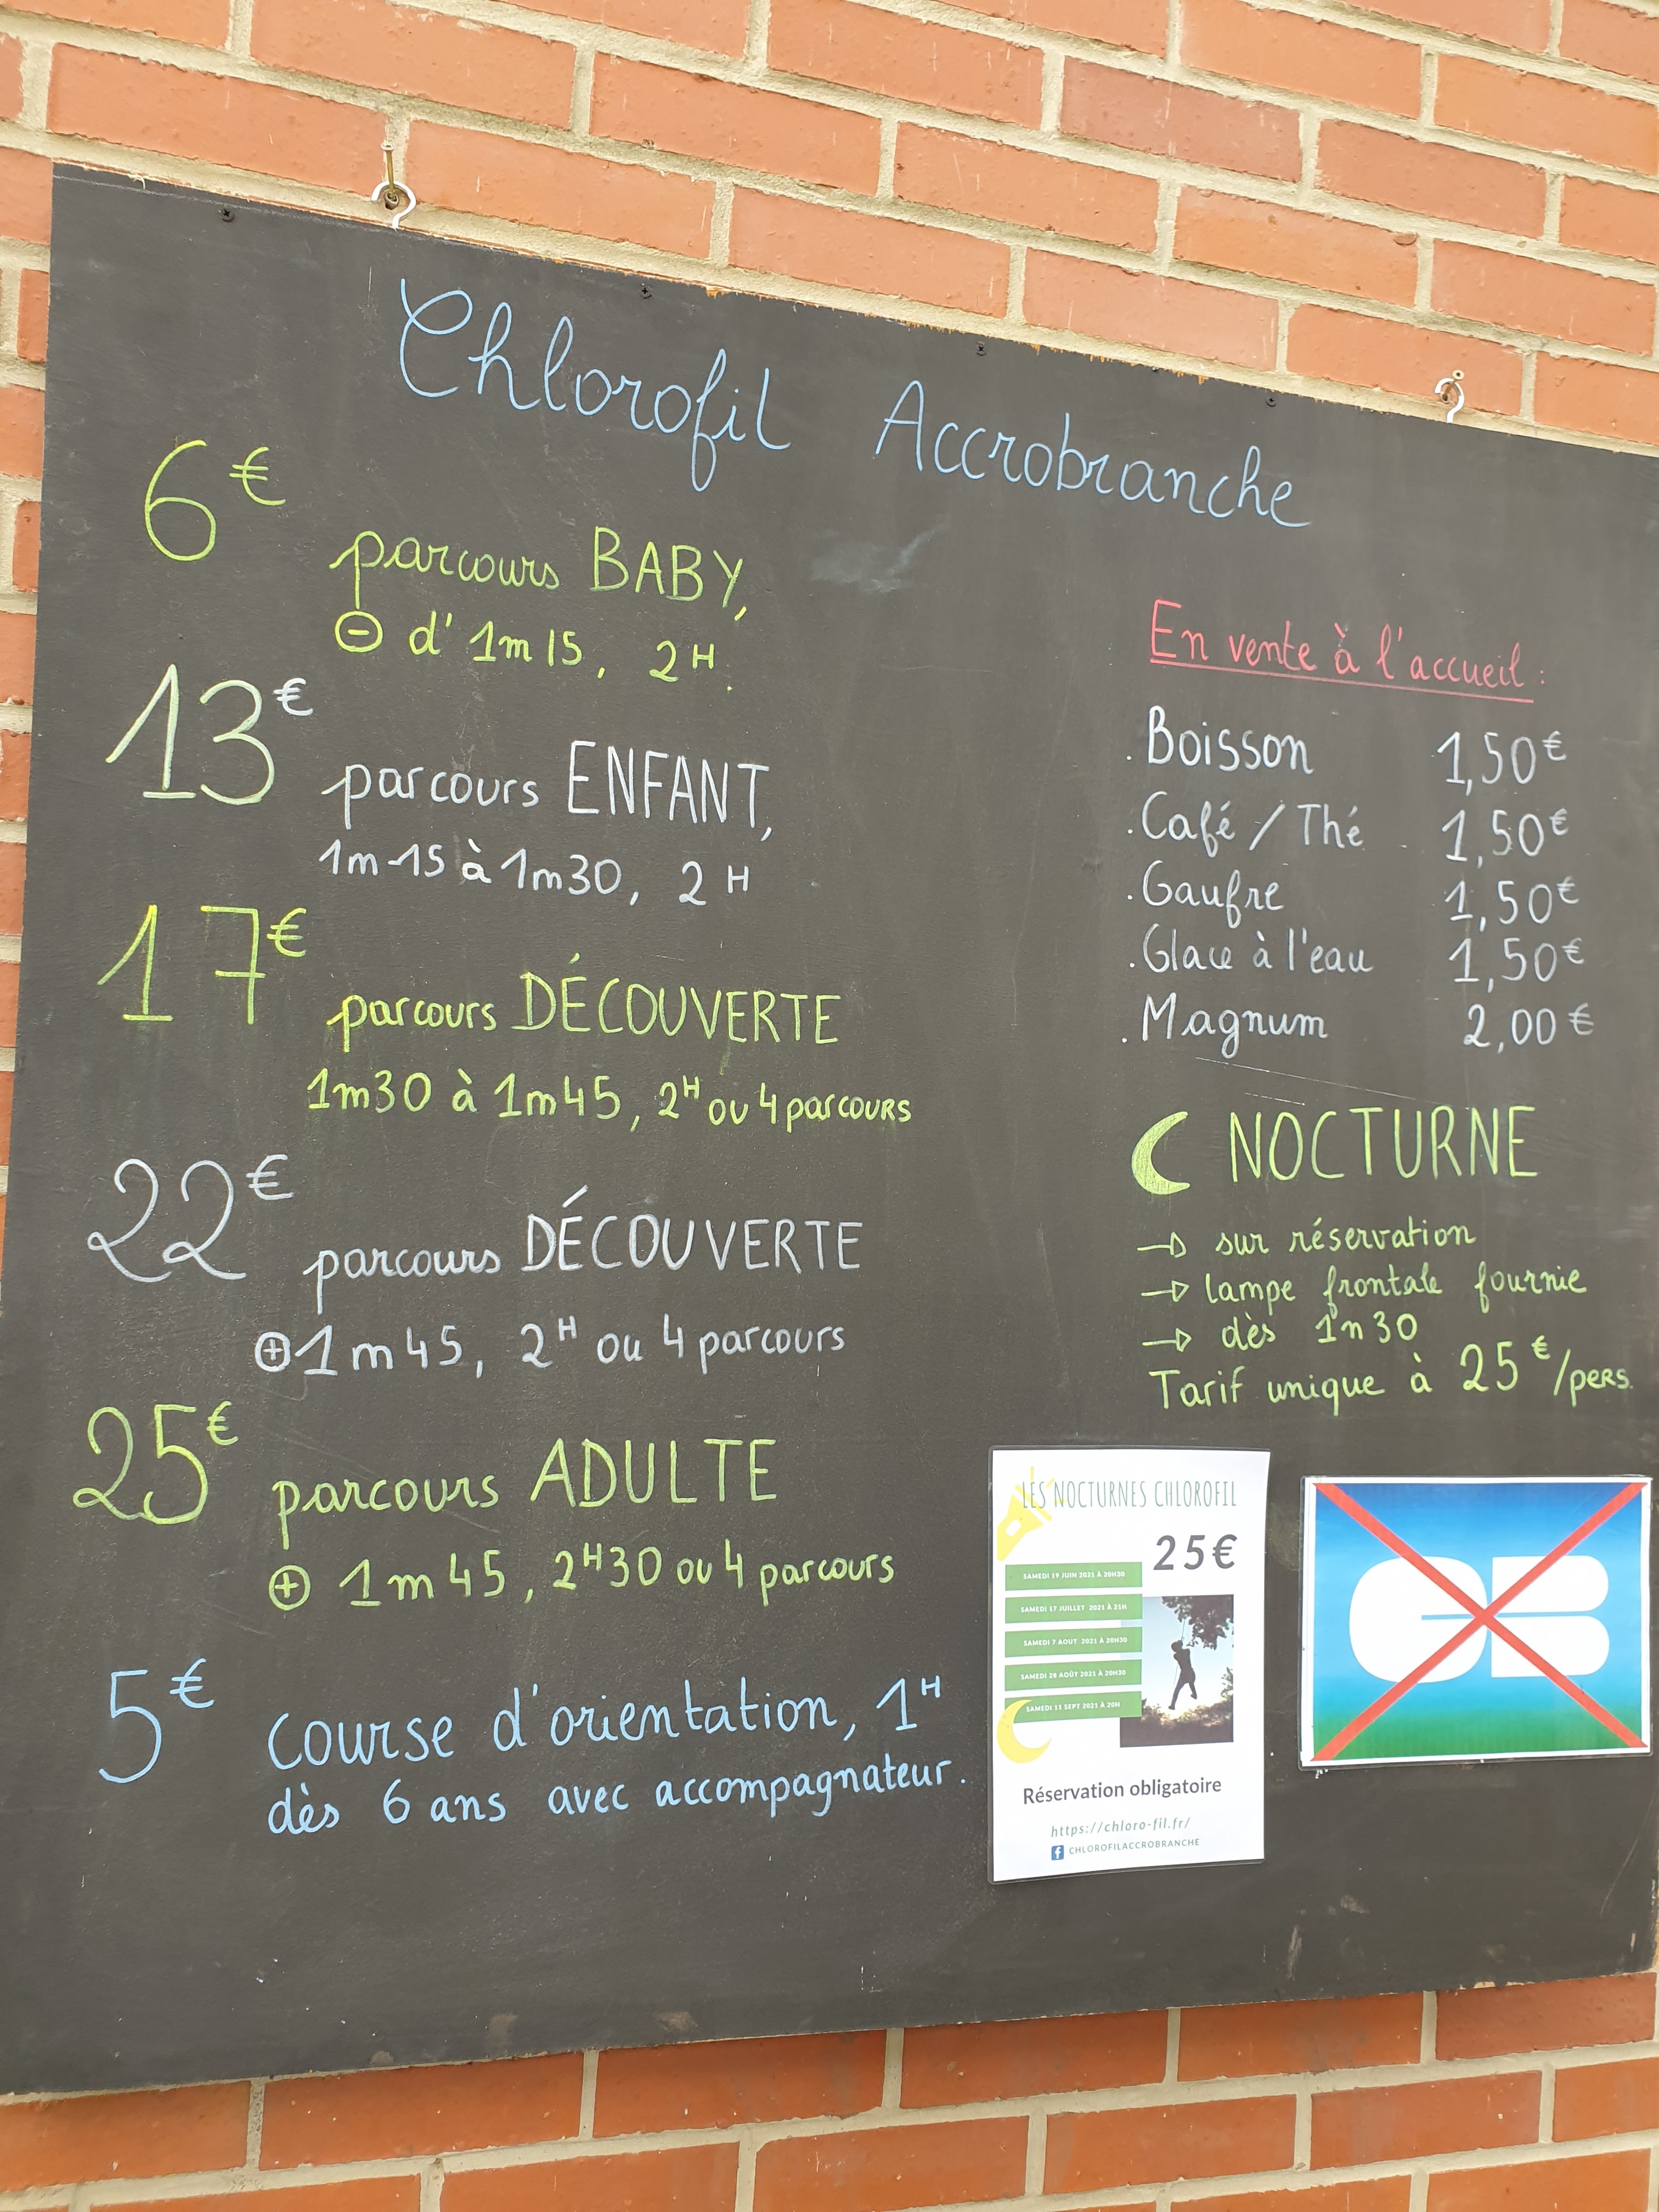 Chlorofil Accrobranche
6€
parcours BABY,
⊖ d'1m15, 2H.
13€
parcours ENFANT,
1m15 à 1m30, 2H
17€
parcours DÉCOUVERTE
1m30 à 1m45, 2H ou 4 parcours
22€
parcours DÉCOUVERTE
⊕1m45, 2H ou 4 parcours
25€
parcours ADULTE
⊕ 1m45, 2H30 ou 4 parcours
5€
course d'orientation, 1H
dès 6 ans avec accompagnateur.
En vente à l'accueil :
. Boisson 1,50€
. Café / Thé 1,50€
. Gaufre 1,50€
. Glace à l'eau 1,50€
. Magnum 2,00€
NOCTURNE
→ sur réservation
→ lampe frontale fournie
→ dès 1m30
Tarif unique à 25€/pers.
LES NOCTURNES CHLOROFIL
25€
SAMEDI 19 JUIN 2021 À 20H30
SAMEDI 17 JUILLET 2021 À 21H
SAMEDI 7 AOUT 2021 À 20H30
SAMEDI 28 AOÛT 2021 À 20H30
SAMEDI 11 SEPT 2021 À 20H
Réservation obligatoire
https://chloro-fil.fr/
f CHLOROFILACCROBRANCHE
CB